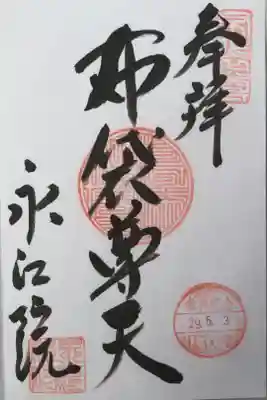 奉拝
布袋尊天
永江院
29.5.3